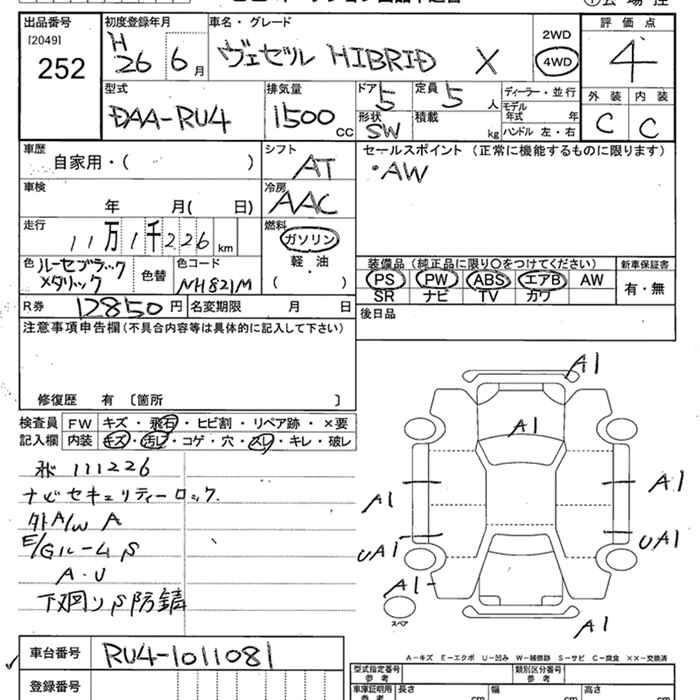 出品番号 初度登録年月 車名・グレード 評価点
[2049]
252 H26 6月 ヴェゼル HIBRID X 2WD 4WD 4
型式 排気量 ドア 定員 ディーラー・並行 外装 内装
DAA-RU4 1500cc 5 5人 モデル年式 年 C C
形状 SW 積載 kg ハンドル 左・右
車歴 シフト セールスポイント (正常に機能するものに限ります)
自家用・( ) AT ・AW
車検 冷房
年 月( 日) AAC
走行 燃料
11万1千226km ガソリン
軽・油
( )
色 ルーセブラックメタリック 色替 色コード NH821M
装備品(純正品に限り○をつけてください) 新車保証書
PS PW ABS エアB AW 有・無
SR ナビ TV カワ
R券 12850円 名変期限 月 日 後日品
注意事項申告欄(不具合内容等は具体的に記入して下さい)
修復歴 有 〔箇所 〕
検査員 FW キズ・飛石・ヒビ割・リペア跡・×要
記入欄 内装 キズ・汚レ・コゲ・穴・スレ・キレ・破レ
A1
A1
111226
ナビセキュリティーロック
A1 A1
外A/W A
UA1 UA1
E/Gルーム S
A・U
A1
下廻りS防錆
スペア
A1
車台番号 RU4-1011081
A-キズ E-エクボ U-凹み W-補修跡 S-サビ C-腐食 ××-交換済
登録番号
型式指定番号 参考 類別区分番号 参考
車庫証明用 参考 長さ cm 幅 cm 高さ cm